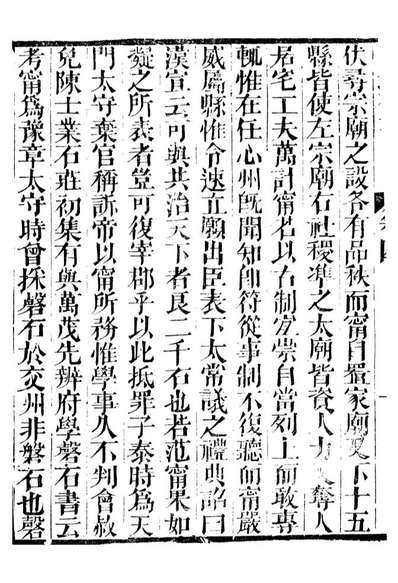 伏尋宗廟之設各有品秩而甯自置家廟又下十五
縣皆使左宗廟右社稷準之太廟皆資人力又奪人
居宅工夫萬計甯若以古制宜崇自當列上而敢專
輒惟在任心州既聞知即符從事制不復聽而甯嚴
威屬縣惟令速立願出臣表下太常議之禮典詔曰
漢宣云可與共治天下者良二千石也若范甯果如
凝之所表者豈可復宰郡乎以此抵罪子泰時為天
門太守棄官稱訴帝以甯所務惟學事久不判會赦
免陳士業石莊初集有與萬茂先辨府學磬石書云
考甯為豫章太守時曾採磬石於交州非磬石也磬